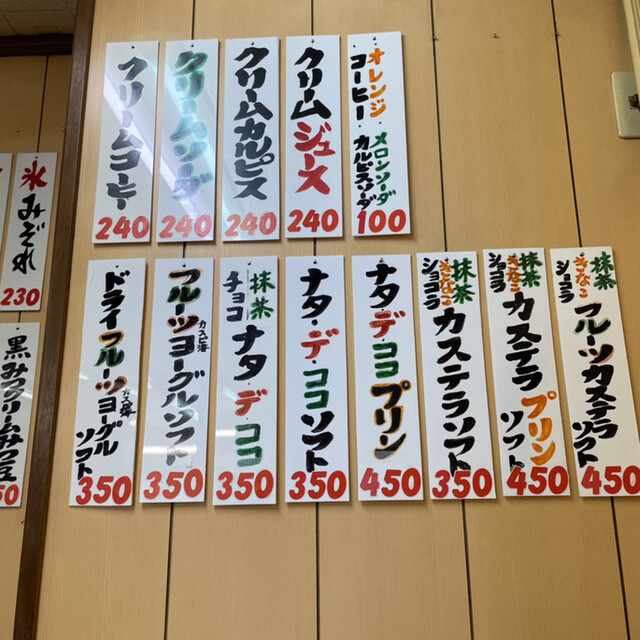 クリームコーヒー
240
クリームソーダ
240
クリームカルピス
240
クリームジュース
240
オレンジ・メロンソーダ
コーヒー・カルピスソーダ
100
氷みぞれ
230
黒みつクリームみつ豆
50
ドライフルーツヨーグル
ソフト
350
カスピ海
フルーツヨーグルソフト
350
抹茶
チョコ
ナタ・デ・ココ
350
ナタ・デ・ココソフト
350
ナタ・デ・ココプリン
450
抹茶
きなこ
ショコラ
カステラソフト
350
抹茶
きなこ
ショコラ
カステラプリン
ソフト
450
抹茶
きなこ
ショコラ
フルーツカステラ
ソフト
450